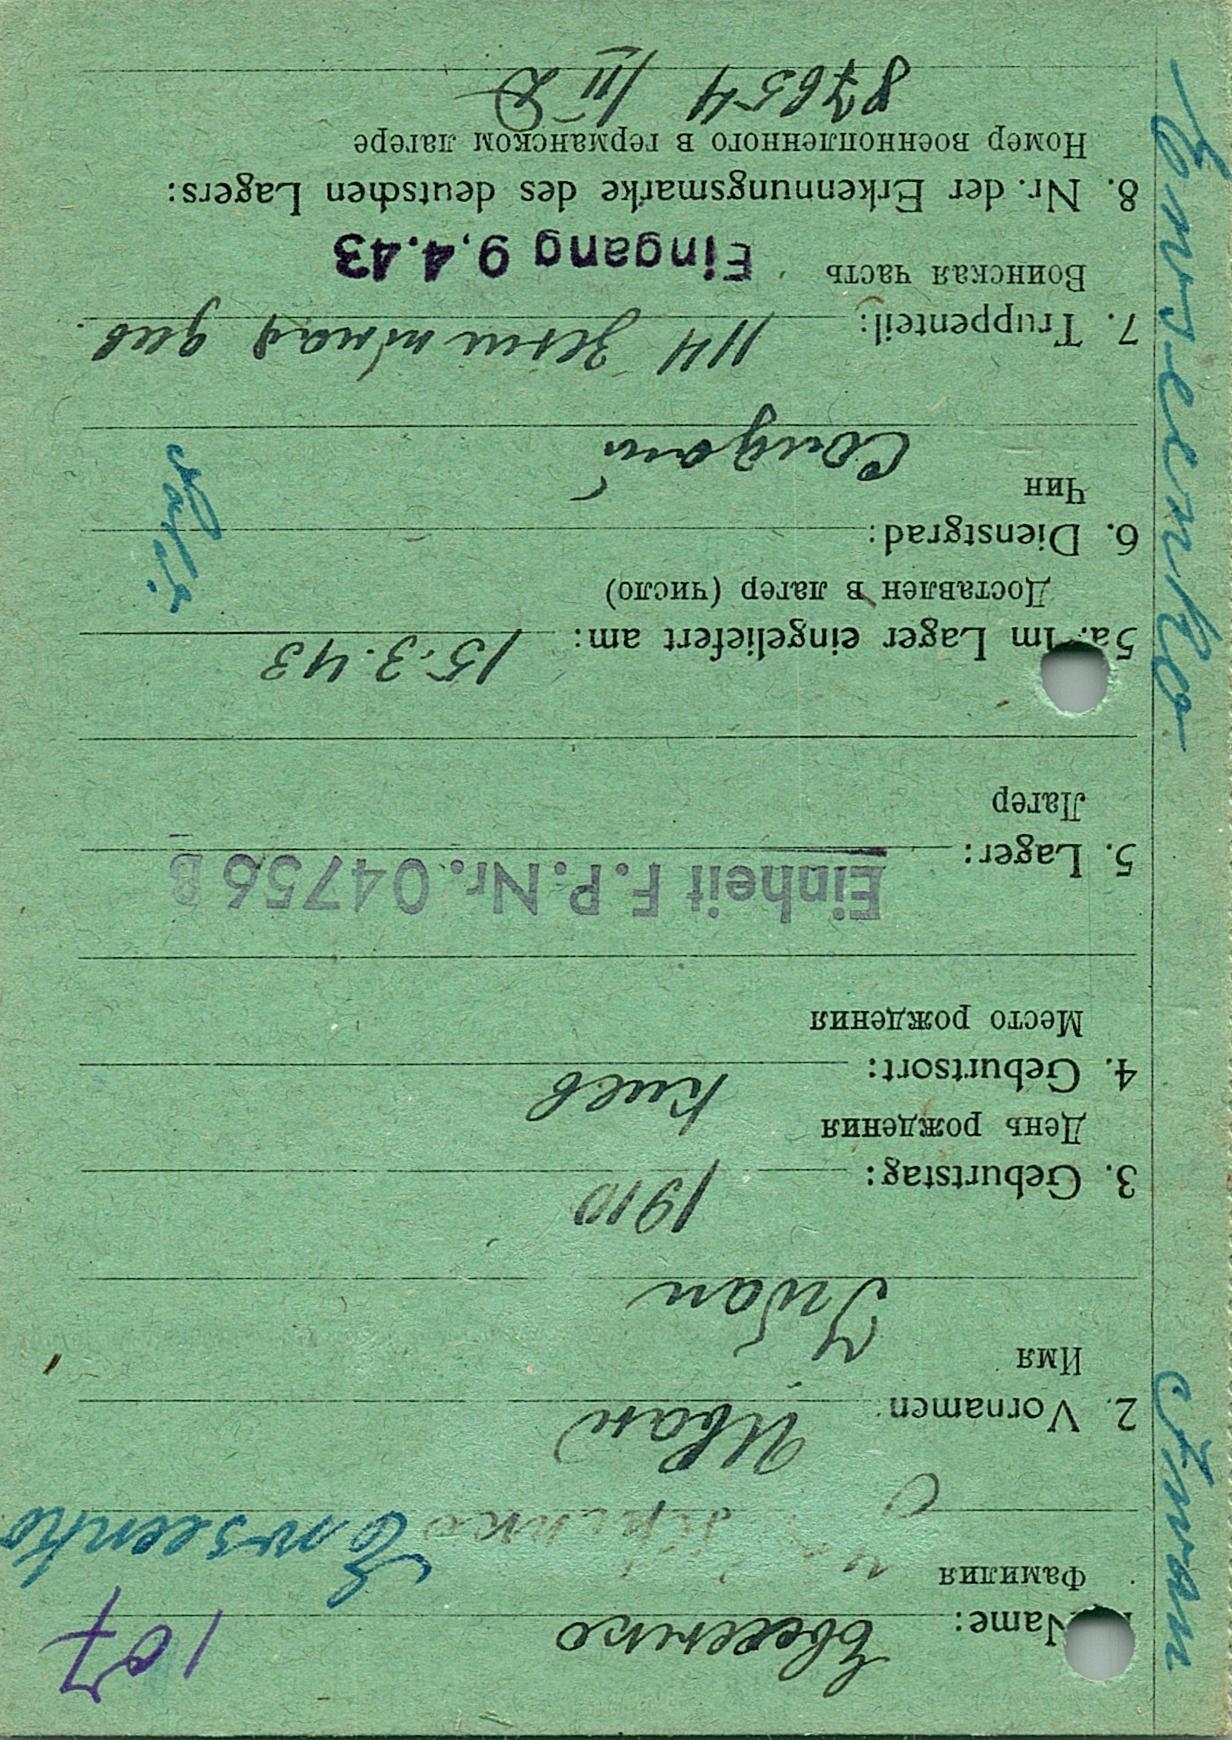 107
Name: Евсеенко
Фамилия
Ewseenko
2. Vornamen Иван
Имя
Iwan
3. Geburtstag: 1910
День рождения
4. Geburtsort: Киев
Место рождения
5. Lager: Einheit F.P. Nr. 04756 B
Лагер
5a. Im Lager eingeliefert am: 15.3.43
Доставлен в лагер (число)
6. Dienstgrad:
Чин
Солдат
7. Truppenteil: 114
Воинская часть
Eingang 9.4.43
8. Nr. der Erkennungsmarke des deutschen Lagers:
Номер военнопленного в германском лагере
87654 /II D
Ewseenko Iwan